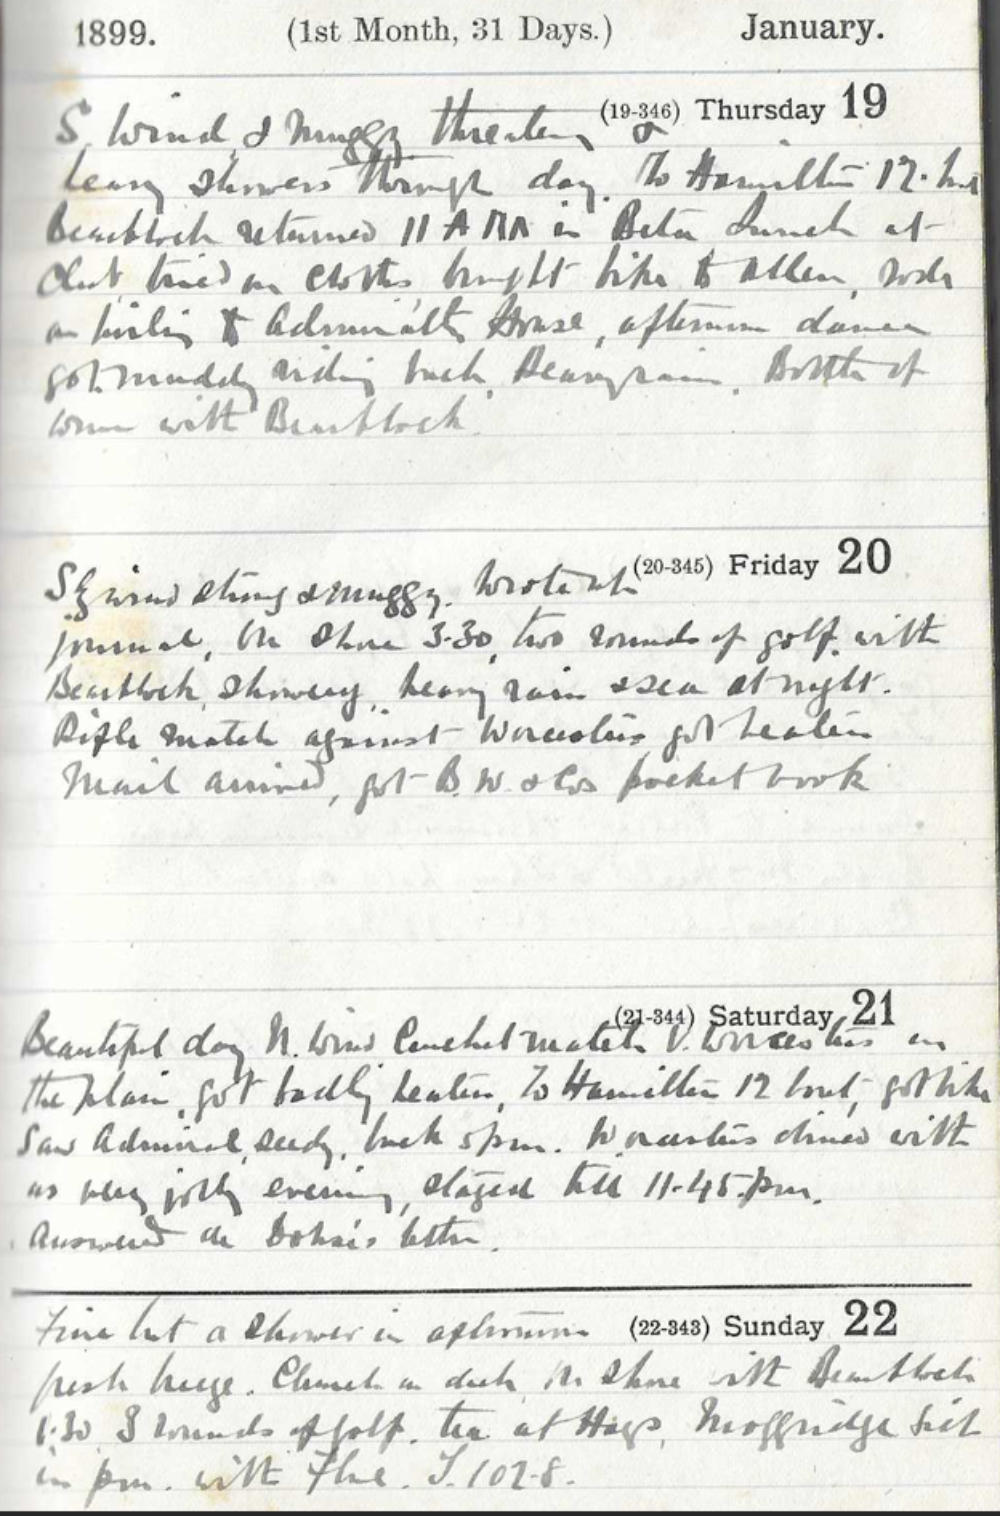 1899. (1st Month, 31 Days.) January.
(19-346) Thursday 19
S. Wind, & muggy threatening &
heavy showers through day. To Hamilton 12.
Beartlock returned 11 AM in Lunch at
Club tried on clothes brought bike to Allen, rode
on to Admiralty House, afternoon dance
got muddy riding back. Heavy rain. Bottle of
wine with Beartlock.
(20-345) Friday 20
SE wind strong & muggy. Wrote up
journal, On shore 3.30, two rounds of golf with
Beartlock, showery, heavy rain & sea at night.
Rifle match against Worcesters, got beaten
Mail arrived, got B.W. & Cos pocket book
(21-344) Saturday 21
Beautiful day N. Wind Cricket match V. Worcesters on
the plain, got badly beaten, To Hamilton 12 boat, got bike
Saw Admiral, seedy, back 5 pm. Worcesters dined with
us very jolly evening, stayed till 11.45. pm.
Answered de letter.
(22-343) Sunday 22
Fine but a shower in afternoon
fresh breeze. Church on deck, On shore with Beartlock
1.30 3 rounds of golf. tea at Hags, Moggridge sick
in pm. with Flue. T. 102.8.